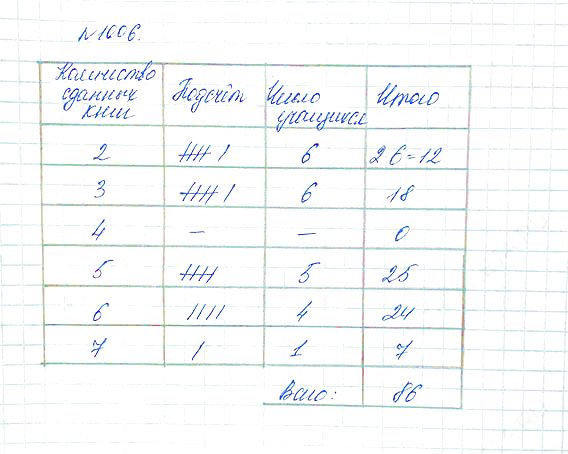 №1006.
Количество сданных книг Подсчёт Число учащихся Итого
2 ~~////~~ / 6 2·6=12
3 ~~////~~ / 6 18
4 — — 0
5 ~~////~~ 5 25
6 //// 4 24
7 / 1 7
Всего: 86